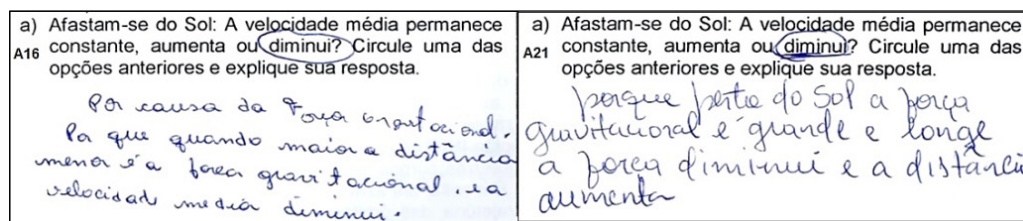 a) Afastam-se do Sol: A velocidade média permanece
A16 constante, aumenta ou diminui? Circule uma das
opções anteriores e explique sua resposta.
Por causa da Força
Pa que quando maior a distância
menor é a força gravitacional, e a
velocidade media diminui.
a) Afastam-se do Sol: A velocidade média permanece
A21 constante, aumenta ou diminui? Circule uma das
opções anteriores e explique sua resposta.
porque perto do Sol a força
gravitacional é grande e longe
a força diminui e a distânci
aumenta